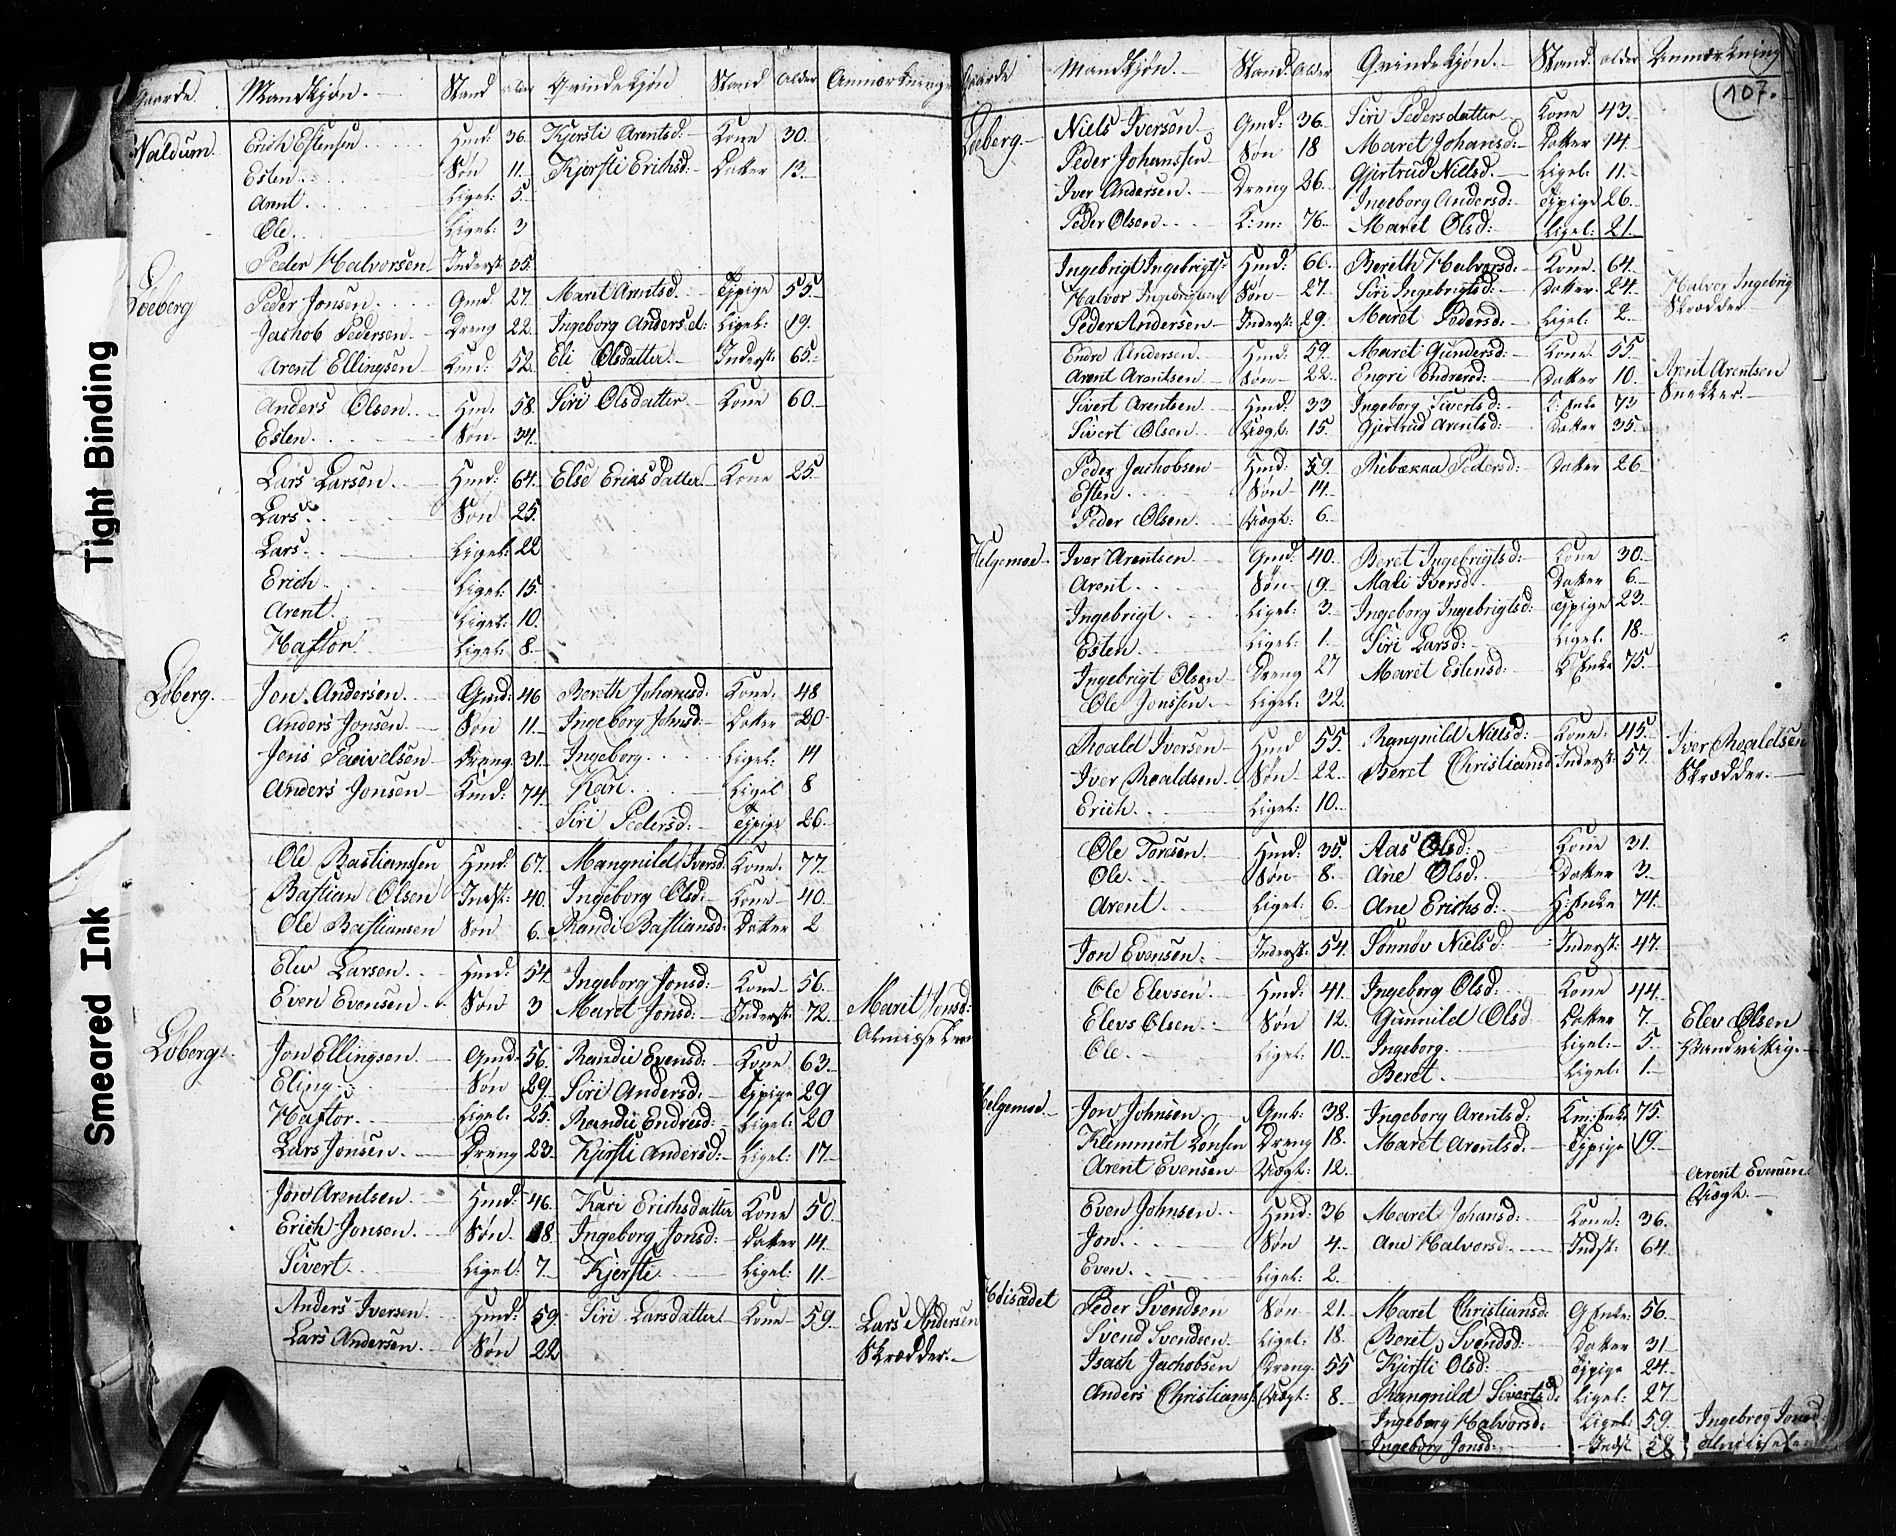 Tight Binding
Smeared Ink
Gaarde. Mandkjøn. Stand alder Qvindekjøn Stand alder Anmærkninge
Naldum. Erich Estensen Hmd: 36. Kjersti Arentsd: Kone 30.
Esten. Søn 11. Kjersti Erichsd: Datter 13.
Arent. Ligel: 5.
Ole. Ligel: 3
Peder Halvorsen Inderst: 35.
Loeberg Peder Jonsen. Gmd: 27. Marit Arntsd. Tjpige 55.
Jachob Pedersen. Dreng 22. Ingeborg Andersd: Ligel: 19.
Arent Ellingsen Kmd: 52. Eli Olsdatter. Inderst: 65.
Anders Olsen. Hm: 58. Siri Olsdatter Kone 60.
Esten. Søn 34.
Lars Larsen. Hmd: 64. Else Eriksdatter. Kone 25.
Lars. Søn 25.
Lars. Ligel: 22
Erich Ligel: 15.
Arent. Ligel: 10.
Haftor. Ligel: 8.
Loberg. Jon Andersen. Gmd: 46 Bereth Johansd: Kone. 48
Anders Jonsen. Søn 11. Ingeborg Johnsd: Datter 20
Jens Pavelsen Dreng 31. Ingeborg. Ligel: 14
Anders Jonsen Kmd: 74. Kari. Ligel 8
Siri Pedersd: Tjpige 26.
Ole Bastianssen Hmd: 67. Mangnild Iversd: Kone. 77.
Bastian Olsen Indst: 40. Ingeborg Olsd: Kone 40
Ole Bastiansen Søn 6. Randi Bastiansd: Datter 2
Elev Larsen. Hmd: 54 Ingeborg Jonsd: Kone 56.
Even Evensen. Søn 3 Maret Jonsd: Inderst: 72. Marit Jonsd:
Almisse Lem
Loberg. Jon Ellingsen. Gmd: 56. Randie Evensd: Kone 63.
Eling. Søn 29. Siri Andersd: Tjpige 29
Haftor. Ligel: 25. Randie Endresd: Ligel: 20
Lars Jonsen. Dreng 23. Kjersti Andersd: Ligel: 17.
Jon Arentsen. Hmd: 46. Kari Erichsdatter Kone 50.
Erich Jonsen. Søn. 18. Ingeborg Jonsd: Datter 14.
Sivert. Ligel: 7. Kjersti Ligel: 11.
Anders Iversen. Hmd: 59. Siri Larsdatter. Kone 59. Lars Andersen
Lars Andersen. Søn 22 Skrædder.
Gaarde Mandkjøn. Stand. alder Qvindekjøn. Stand. alder Anmærkning
107.
Loeberg. Niels Iversen Gmd: 36. Siri Pedersdatter Kone 43.
Peder Johanssen Søn 18 Maret Johansd: Datter 14.
Iver Andersen. Dreng 26. Gjertrud Nielsd. Ligel: 11.
Peder Olsen. K:m: 76. Ingeborg Andersd: Tjpige 26.
Maret Olsd: Ligel: 21.
Ingebrigt Ingebrigts: Hmd: 66. Bereth Halvorsd: Kone. 64.
Halvor Ingebrigtsen Søn 27. Siri Ingebrigtsd: Datter. 24. Halvor Ingebrig
Peder Andersen Inderst: 29. Maret Pedersd: Ligel: 2. Skrædder
Endre Andersen. Hmd: 59. Maret Gundersd: Kone. 55.
Arent Arentsen Søn 22. Engri Endresd: Datter 10. Arent Arentsen
Sivert Arentsen Hmd: 33 Ingeborg Sivertsd: K: Enke 73 Snekker.
Sivert Olsen. Vægt: 15. Gjertrud Arentsd: Datter 35.
Peder Jachobsen Hmd: 59. Rebækka Pedersd: Datter 26
Esten Søn 14.
Peder Olsen. Vægt: 6.
Helgemoe Iver Arentsen Gmd. 40. Beret Ingebrigtsd: Kone 30.
Arent. Søn 9. Mali Iversd. Datter 6.
Ingebrigt. Ligel: 3. Ingeborg Ingebrigtsd: Tjpige 23.
Esten. Ligel: 1. Siri Larsd: Ligel: 18.
Ingebrigt Olsen Dreng 27 Maret Estensd: K Enke 75.
Ole Jonssen. Ligel: 32.
Roald Iversen Hmd 55. Rangnild Nilsd: Kone: 45. Iver Roaldsen
Iver Roaldsen Søn 22. Beret Christiansd Inderst: 57. Skrædder.
Erich. Ligel: 10.
Ole Torsen. Hmd: 35. Aas Olsd: Kone 31.
Ole. Søn 8. Ane Olsd. Datter 3.
Arent. Ligel: 6. Ane Erichsd: H: Enke 74.
Jon Evensen. Inderst: 54. Sønnøv Nielsd: Inderst: 47.
Ole Elevsen. Hmd: 41. Ingeborg Olsd: Kone 44.
Elevs Olsen. Søn 12. Gunnild Olsd Datter 7. Elev Olsen
Ole. Ligel: 10. Ingeborg. Ligel: 5. Vandvittig.
Beret. Ligel: 1.
Helgemoe. Jon Johnsen. Gmb: 38. Ingeborg Arentsd: Km:Enke 75.
Klemmert Lønsen Dreng 18. Maret Arentsd. Tjpige 19.
Arent Evensen Vægt: 12. Arent Evensen
Vægt.
Even Johnsen. Hmd: 36 Maret Johansd: Kone: 36.
Jon. Søn 4. Ane Halvorsd. Indst: 64.
Even. Ligel: 2.
Peder Svendsen Søn 21. Maret Christiansd: G Enke: 56.
Svend Svendsen. Ligel: 18. Beret Svendsd: Datter 31
Isach Jachobsen Dreng. 55 Kjersti Olsd: Tjpige 24.
Anders Christians: Vægt: 8. Rangnild Sivertsd: Ligel: 27.
Ingeborg Halvorsd: Ligel: 59.
Ingeborg Jonsd: Indst Ingebreg Jonsd: